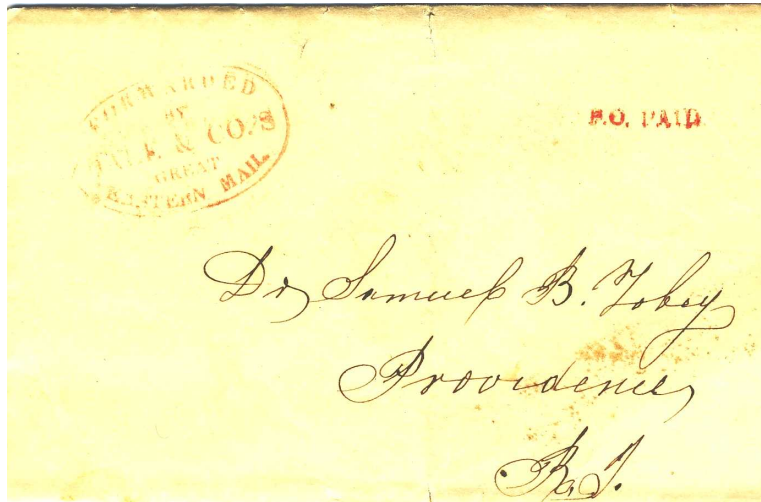 FORWARDED
BY
HALE & CO.'S
GREAT
EASTERN MAIL
P.O. PAID
Dr Samuel B. Tobey
Providence
R.I.